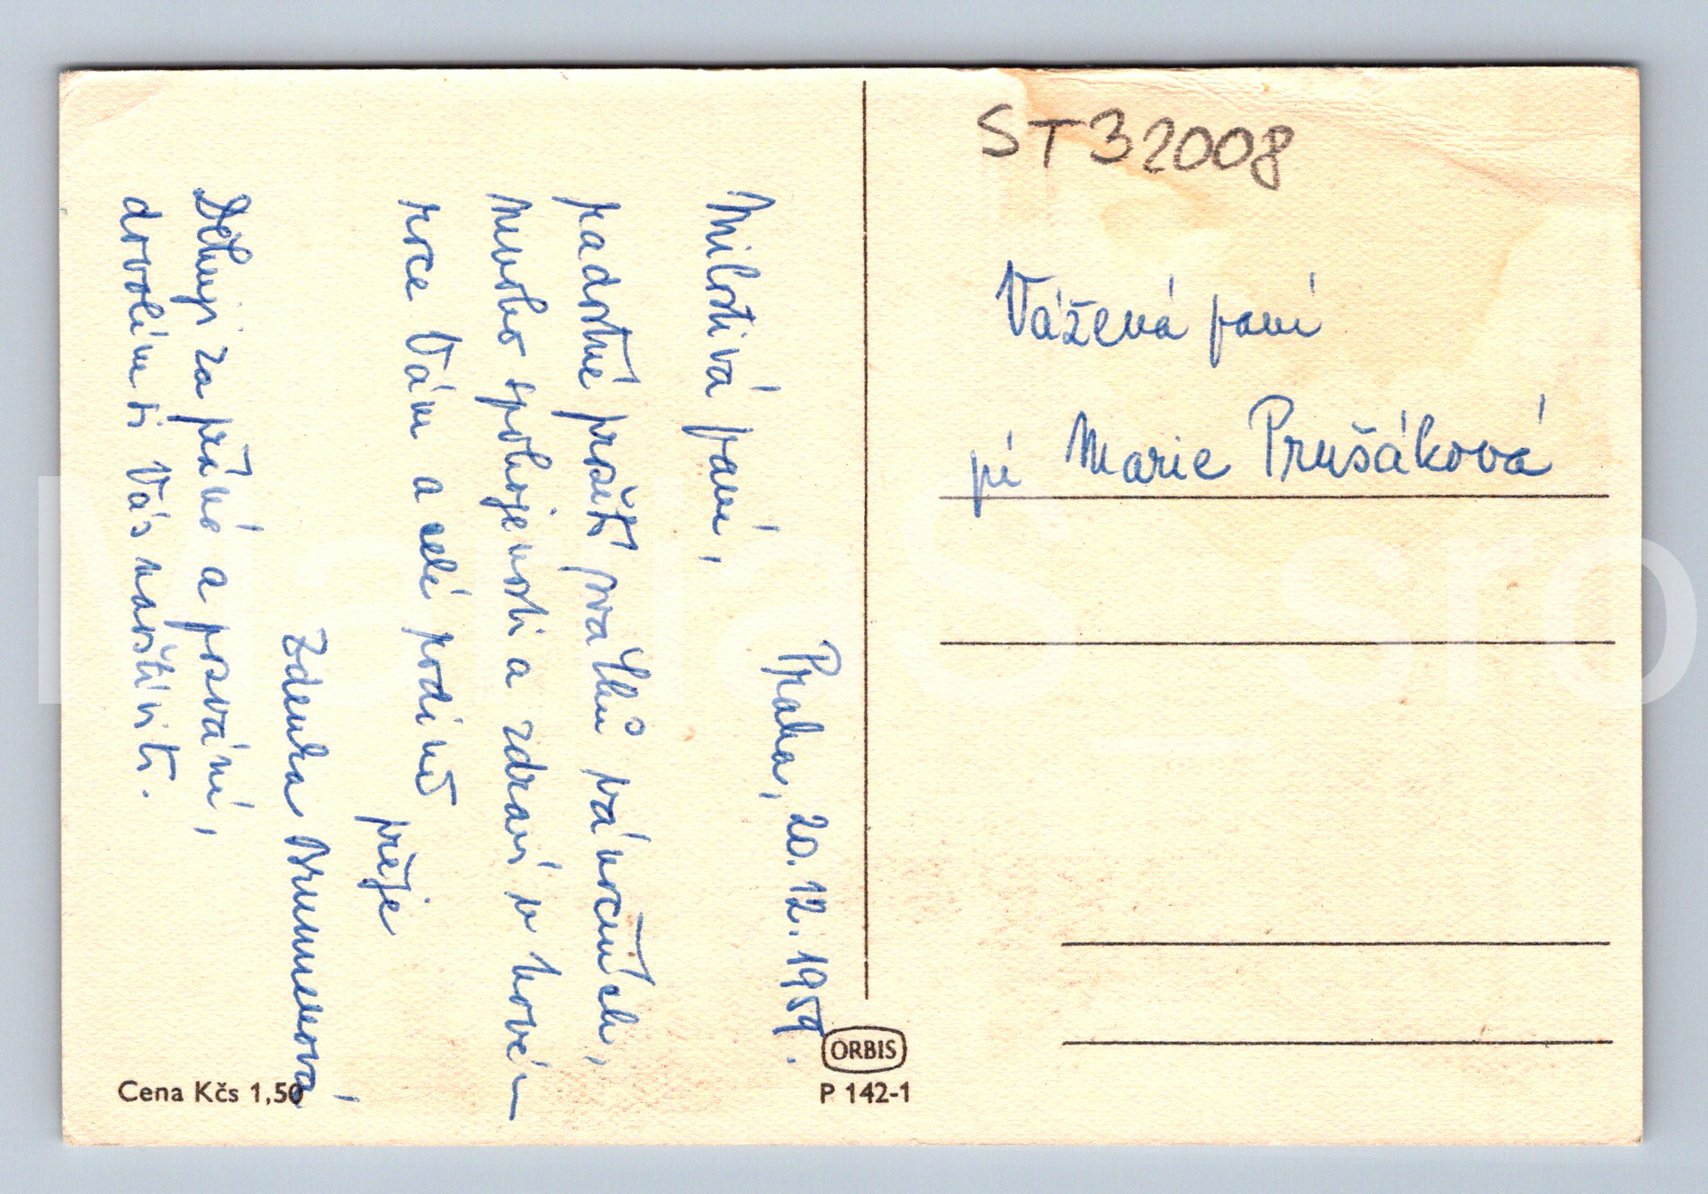 Praha, 20. 12. 1959.
Milostivá paní,
radostné prožití svátků vánočních,
mnoho spokojenosti a zdraví v novém
roce Vám a celé rodině
přeje
Zdenka Brunnerová
Děkuji za přání a pozvání,
dovolím si Vás navštíviti.
ST32008
Vážená paní
pí Marie Prušáková
Cena Kčs 1,50
ORBIS
P 142-1